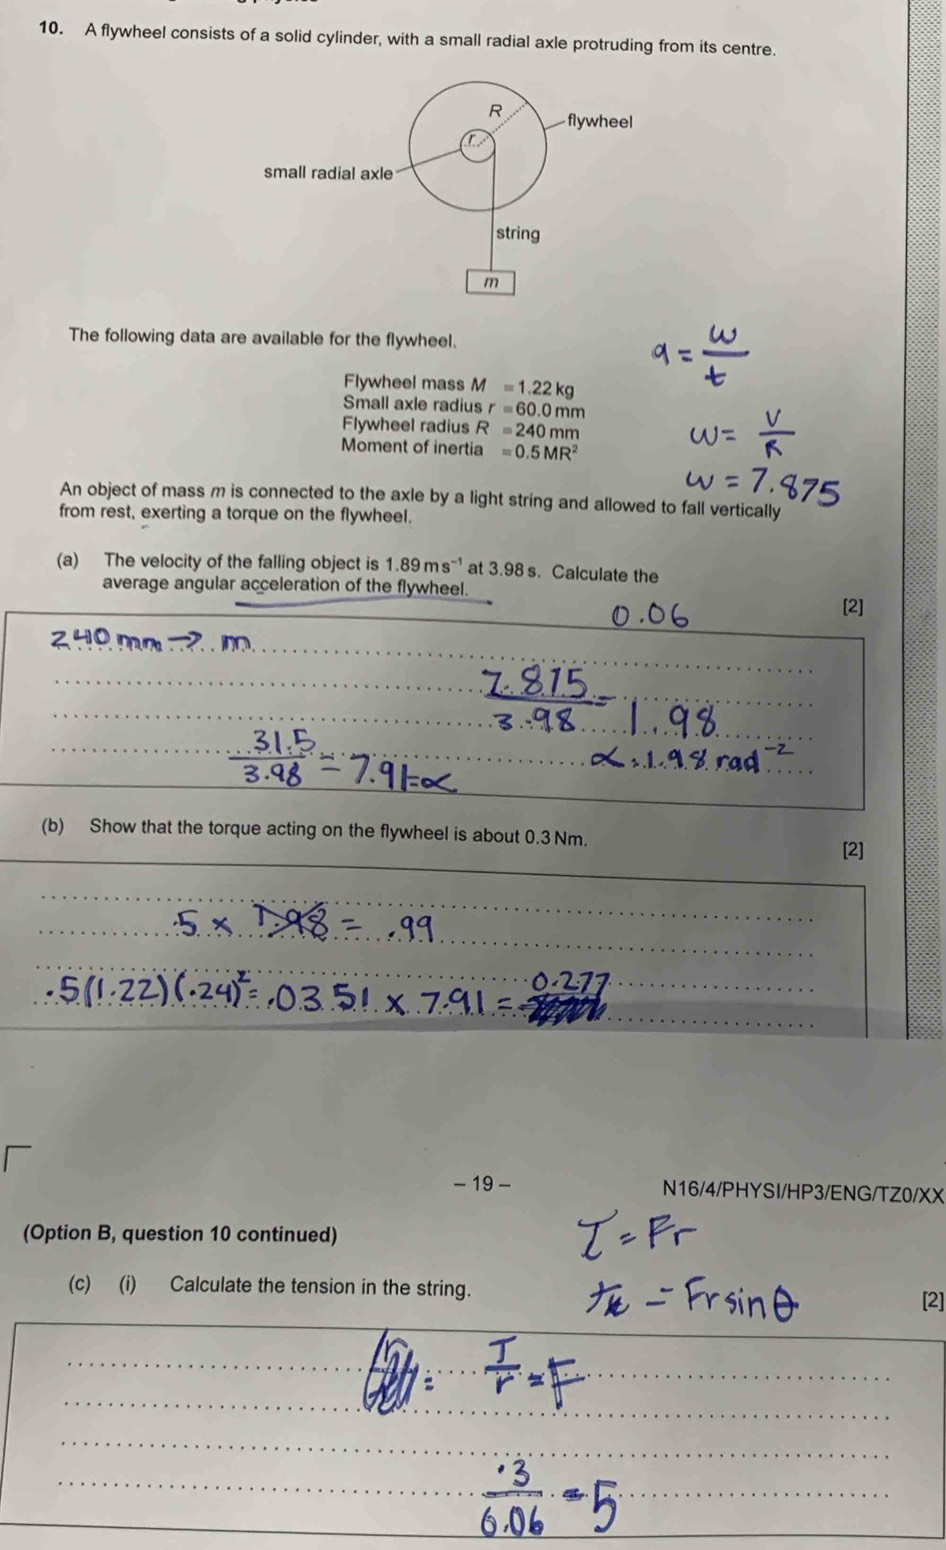 10. A flywheel consists of a solid cylinder, with a small radial axle protruding from its centre.
R
flywheel
r
small radial axle
string
m
The following data are available for the flywheel.
Flywheel mass M = 1.22 kg
Small axle radius r = 60.0 mm
Flywheel radius R = 240 mm
Moment of inertia = 0.5 MR²
a = ω/t
ω = V/R
ω = 7.875
An object of mass m is connected to the axle by a light string and allowed to fall vertically
from rest, exerting a torque on the flywheel.
(a) The velocity of the falling object is 1.89 m s⁻¹ at 3.98 s. Calculate the
average angular acceleration of the flywheel.
[2]
0.06
240 mm → m
7.875/3.98 = 1.98
31.5/3.98 = 7.91 = α
α = 1.98 rad⁻²
(b) Show that the torque acting on the flywheel is about 0.3 Nm.
[2]
.5 × 1.98 = .99
.5(1.22)(.24)² = .0351 × 7.91 = 0.277
– 19 –
N16/4/PHYSI/HP3/ENG/TZ0/XX
(Option B, question 10 continued)
τ = Fr
= Fr sin θ
(c) (i) Calculate the tension in the string.
[2]
= τ/r = F
.3/0.06 = 5